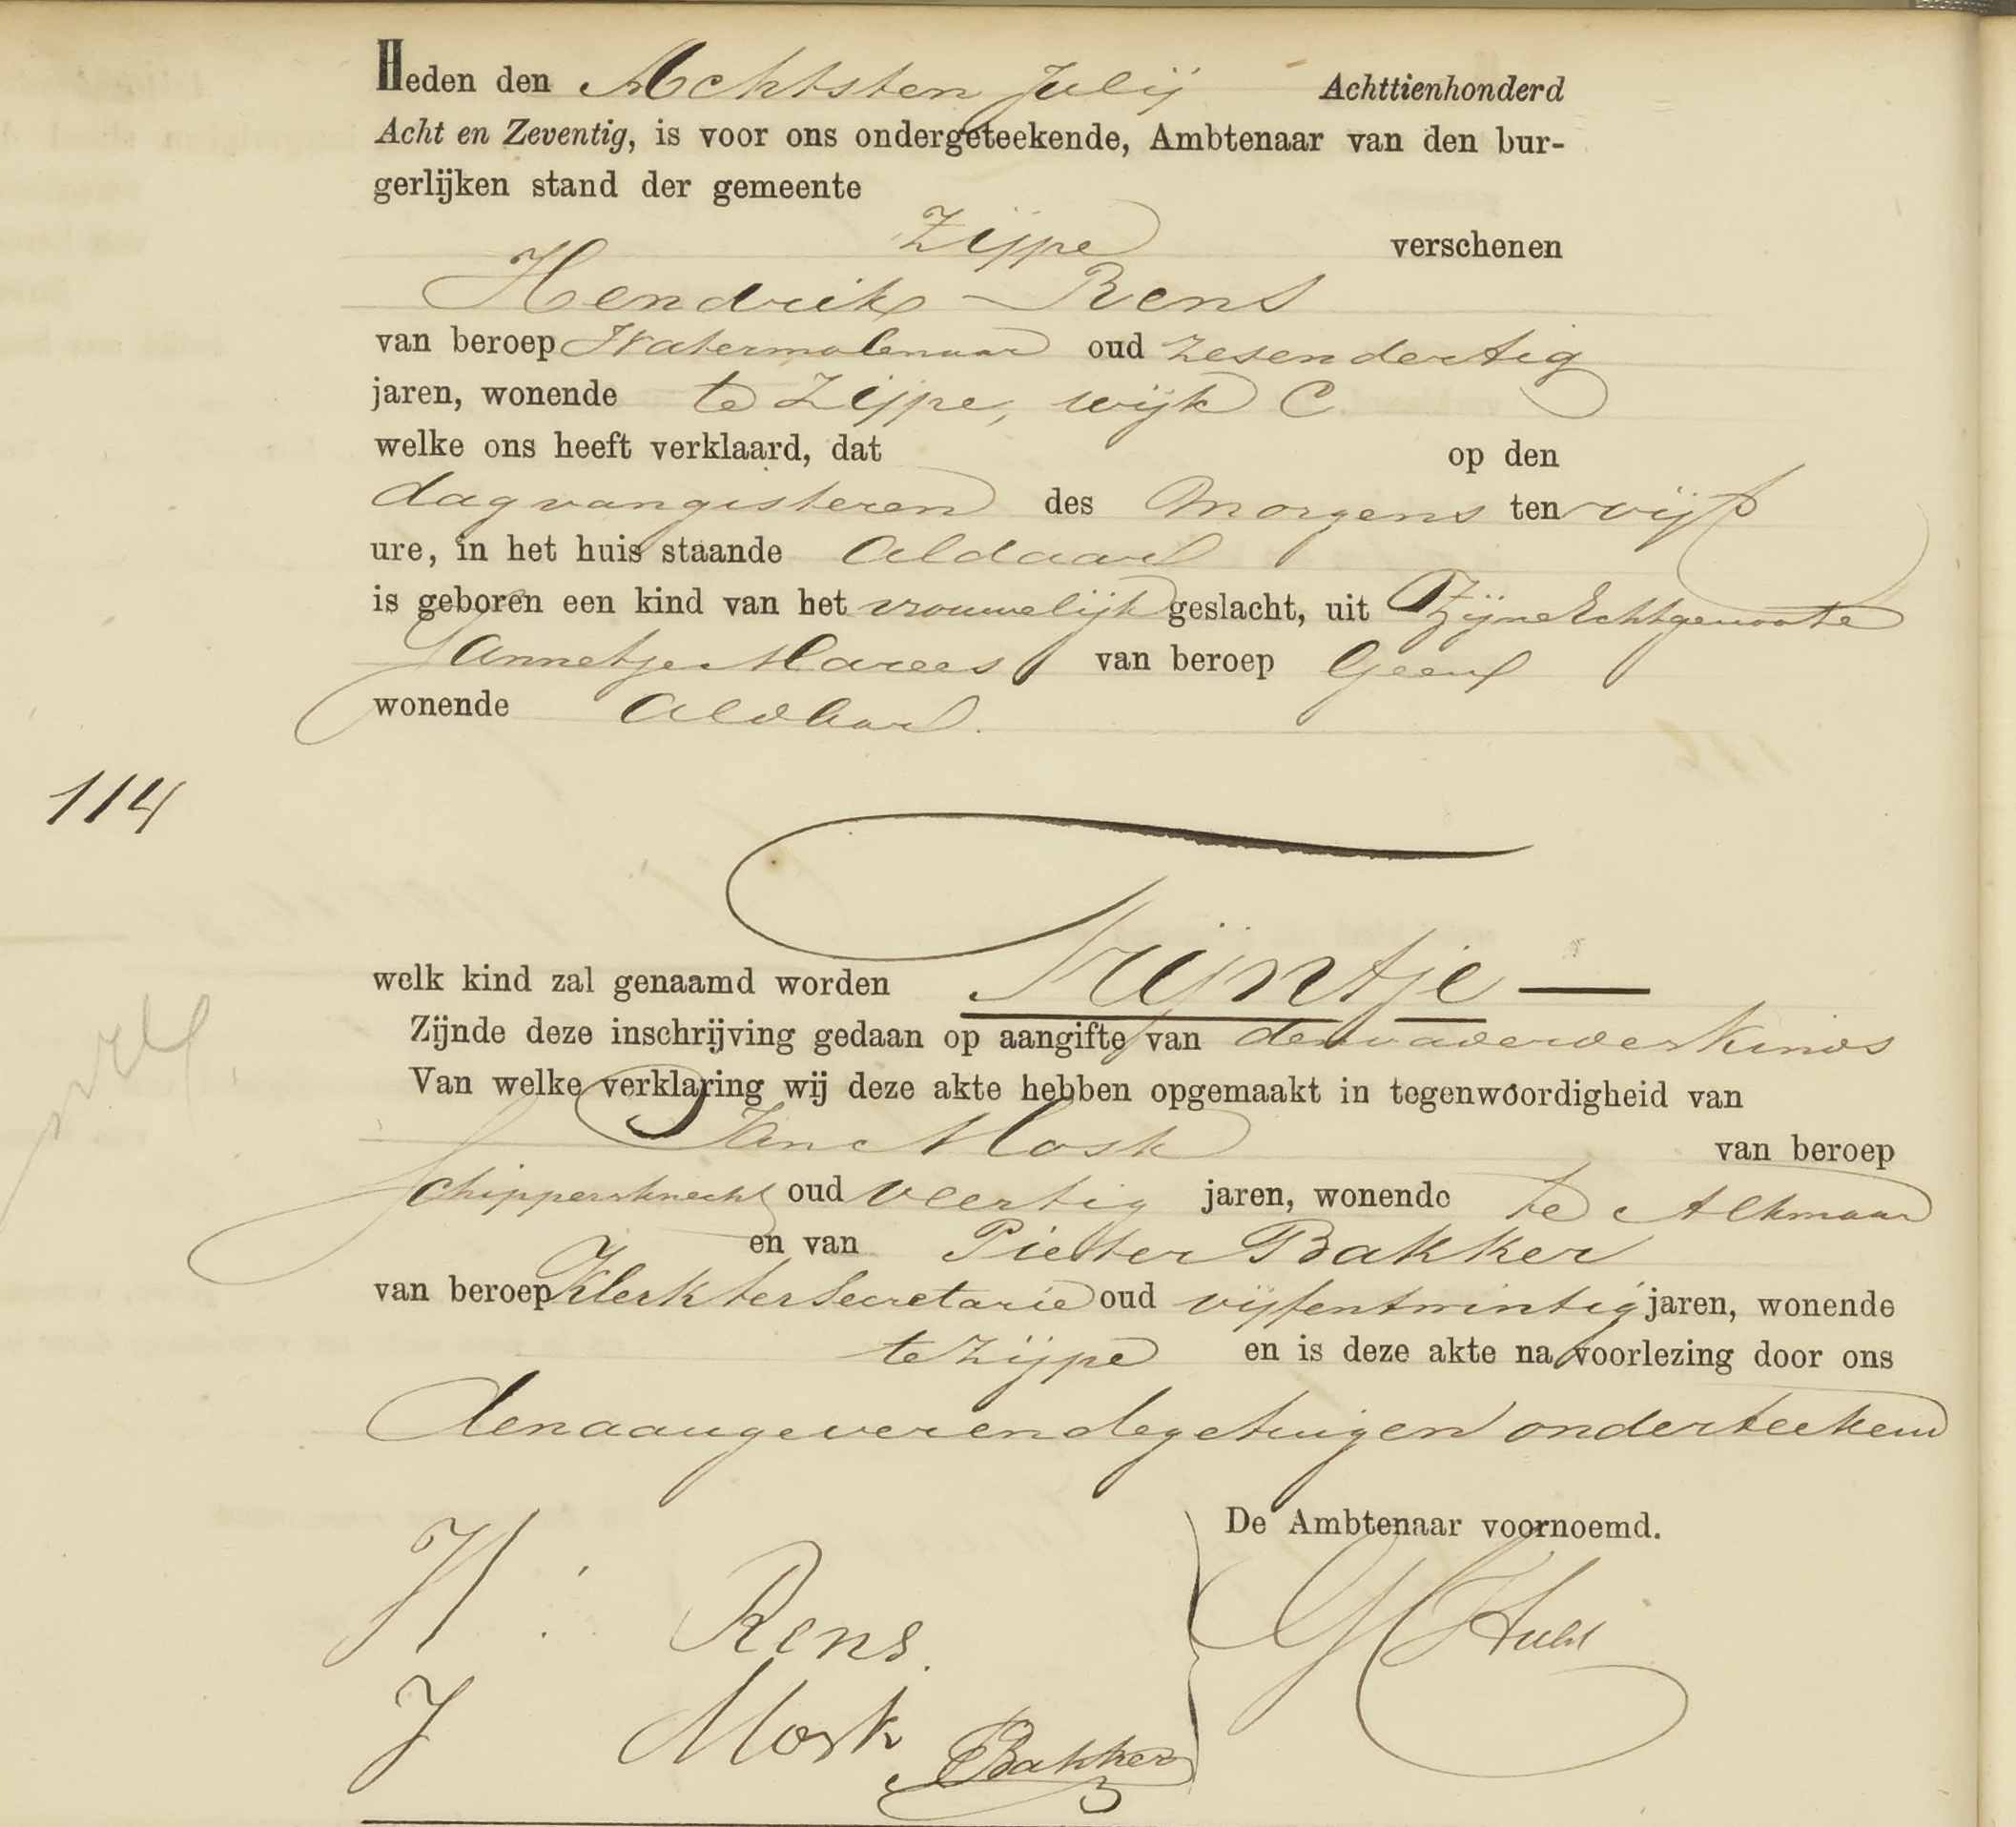 Heden den Achtsten Julij Achttienhonderd
Acht en Zeventig, is voor ons ondergeteekende, Ambtenaar van den bur-
gerlijken stand der gemeente
Zijpe verschenen
Hendrik Rens
van beroep Watermolenaar oud zesendertig
jaren, wonende te Zijpe, wijk C
welke ons heeft verklaard, dat op den
dag van gisteren des morgens ten vijf
ure, in het huis staande aldaar
is geboren een kind van het vrouwelijk geslacht, uit Zijne Echtgenoote
Jannetje Marees van beroep Geen
wonende aldaar.
114
welk kind zal genaamd worden Trijntje —
Zijnde deze inschrijving gedaan op aangifte van den vader des kinds
Van welke verklaring wij deze akte hebben opgemaakt in tegenwoordigheid van
Jan Mosk van beroep
Schippersknecht oud veertig jaren, wonende te Alkmaar
en van Pieter Bakker
van beroep Klerk ter Secretarie oud vijfentwintig jaren, wonende
te Zijpe en is deze akte na voorlezing door ons
den aangever en de getuigen onderteekend
De Ambtenaar voornoemd.
H: Rens.
J Mosk PBakker